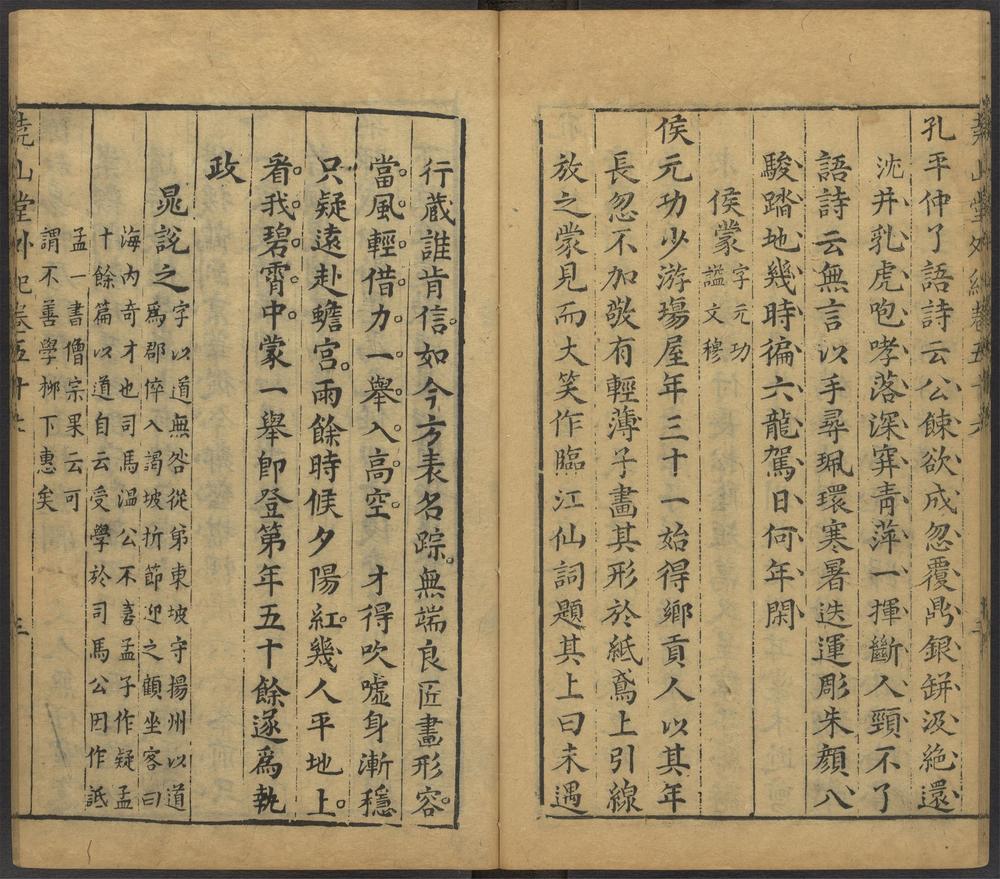 孔平仲了語詩云公餗欲成忽覆鼎銀缾汲絕還
沈井乳虎咆哮落深穽青萍一揮斷人頸不了
語詩云無言以手尋珮環寒暑迭運彫朱顏八
駿踏地幾時徧六龍駕日何年閑
侯蒙
字元功
諡文穆
侯元功少游場屋年三十一始得鄉貢人以其年
長忽不加敬有輕薄子畫其形於紙鳶上引線
放之蒙見而大笑作臨江仙詞題其上曰未遇
行藏誰肯信如今方表名踪無端良匠畫形容
當風輕借力一舉入高空才得吹噓身漸穩
只疑遠赴蟾宮雨餘時候夕陽紅幾人平地上
看我碧霄中蒙一舉卽登第年五十餘遂爲執
政
晁說之
字以道無咎從弟東坡守揚州以道
爲郡倅入謁坡折節迎之顧坐客曰
海內奇才也司馬溫公不喜孟子作疑孟
十餘篇以道自云受學於司馬公因作詆
孟一書僧宗果云可
謂不善學柳下惠矣
堯山堂外紀卷五十